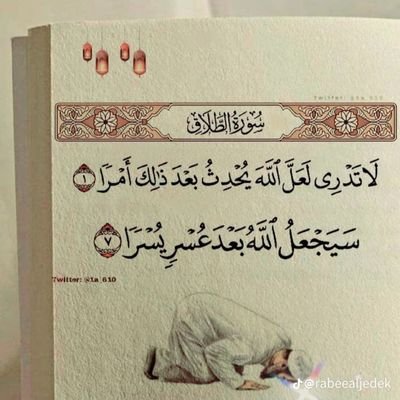 Twitter: @1a_610
سُورَةُ الطَّلَاقِ
لَا تَدْرِى لَعَلَّ ٱللَّهَ يُحْدِثُ بَعْدَ ذَٰلِكَ أَمْرًا ١
سَيَجْعَلُ ٱللَّهُ بَعْدَ عُسْرٍ يُسْرًا ٧
Twitter: @1a_610
@rabeealjedek